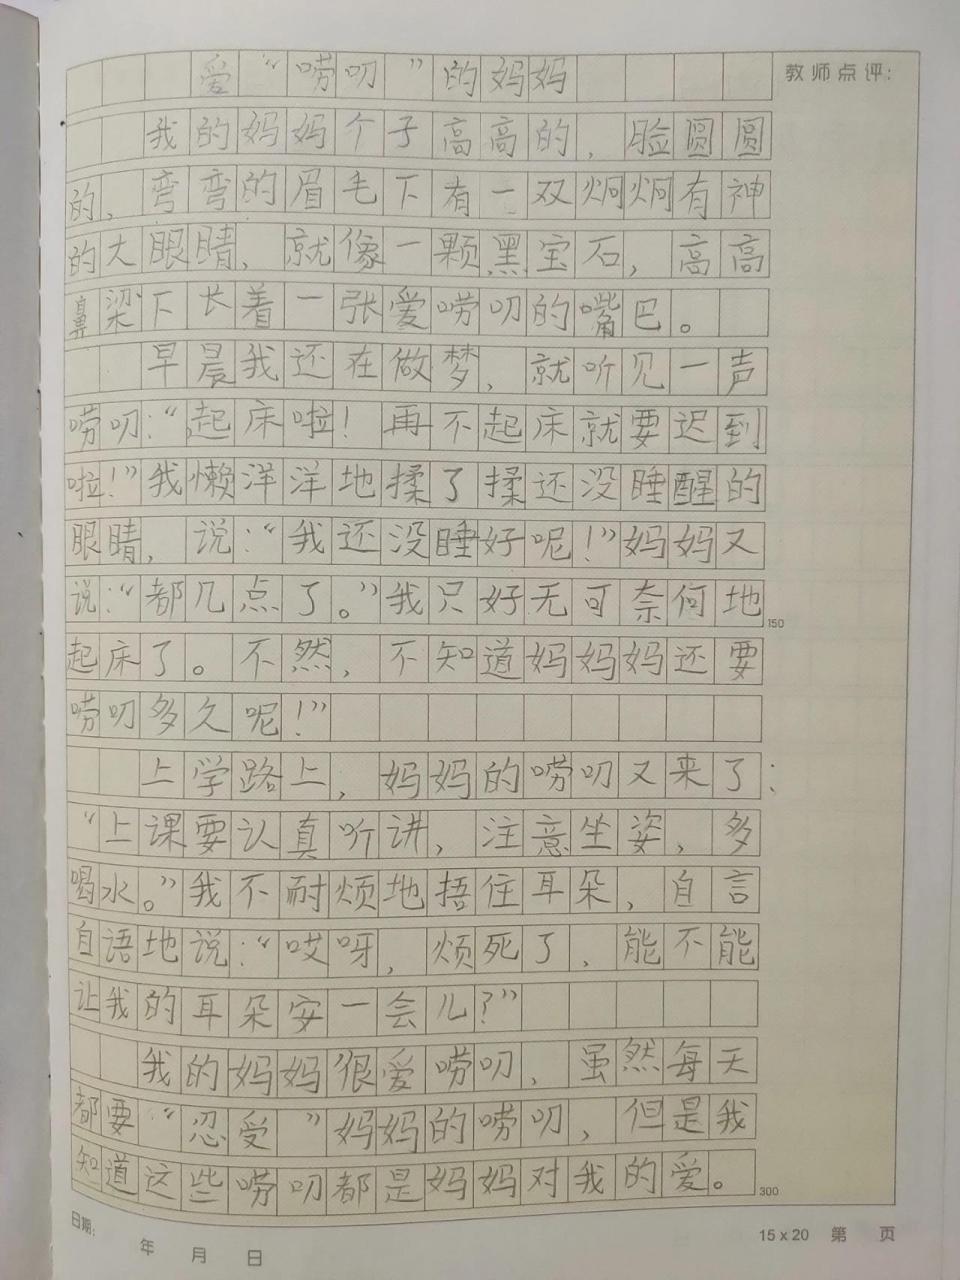 爱“唠叨”的妈妈
教师点评：
我的妈妈个子高高的，脸圆圆
的，弯弯的眉毛下有一双炯炯有神
的大眼睛，就像一颗黑宝石，高高
鼻梁下长着一张爱唠叨的嘴巴。
早晨我还在做梦，就听见一声
唠叨：“起床啦！再不起床就要迟到
啦！”我懒洋洋地揉了揉还没睡醒的
眼睛，说：“我还没睡好呢！”妈妈又
说：“都几点了。”我只好无可奈何地
150
起床了。不然，不知道妈妈妈还要
唠叨多久呢！”
上学路上，妈妈的唠叨又来了：
“上课要认真听讲，注意坐姿，多
喝水。”我不耐烦地捂住耳朵，自言
自语地说：“哎呀，烦死了，能不能
让我的耳朵安一会儿？”
我的妈妈很爱唠叨，虽然每天
都要“忍受”妈妈的唠叨，但是我
知道这些唠叨都是妈妈对我的爱。
300
日期： 年 月 日
15 x 20 第 页